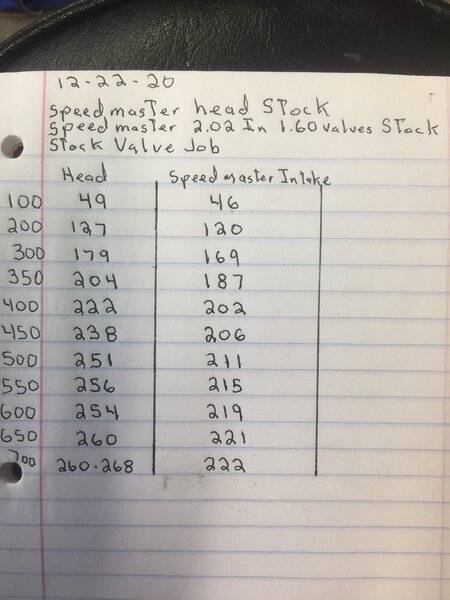 12-22-20
Speedmaster head Stock
Speedmaster 2.02 In 1.60 Valves Stock
Stock Valve Job
Head Speedmaster Intake
100 49 46
200 127 120
300 179 169
350 204 187
400 222 202
450 238 206
500 251 211
550 256 215
600 254 219
650 260 221
700 260-268 222